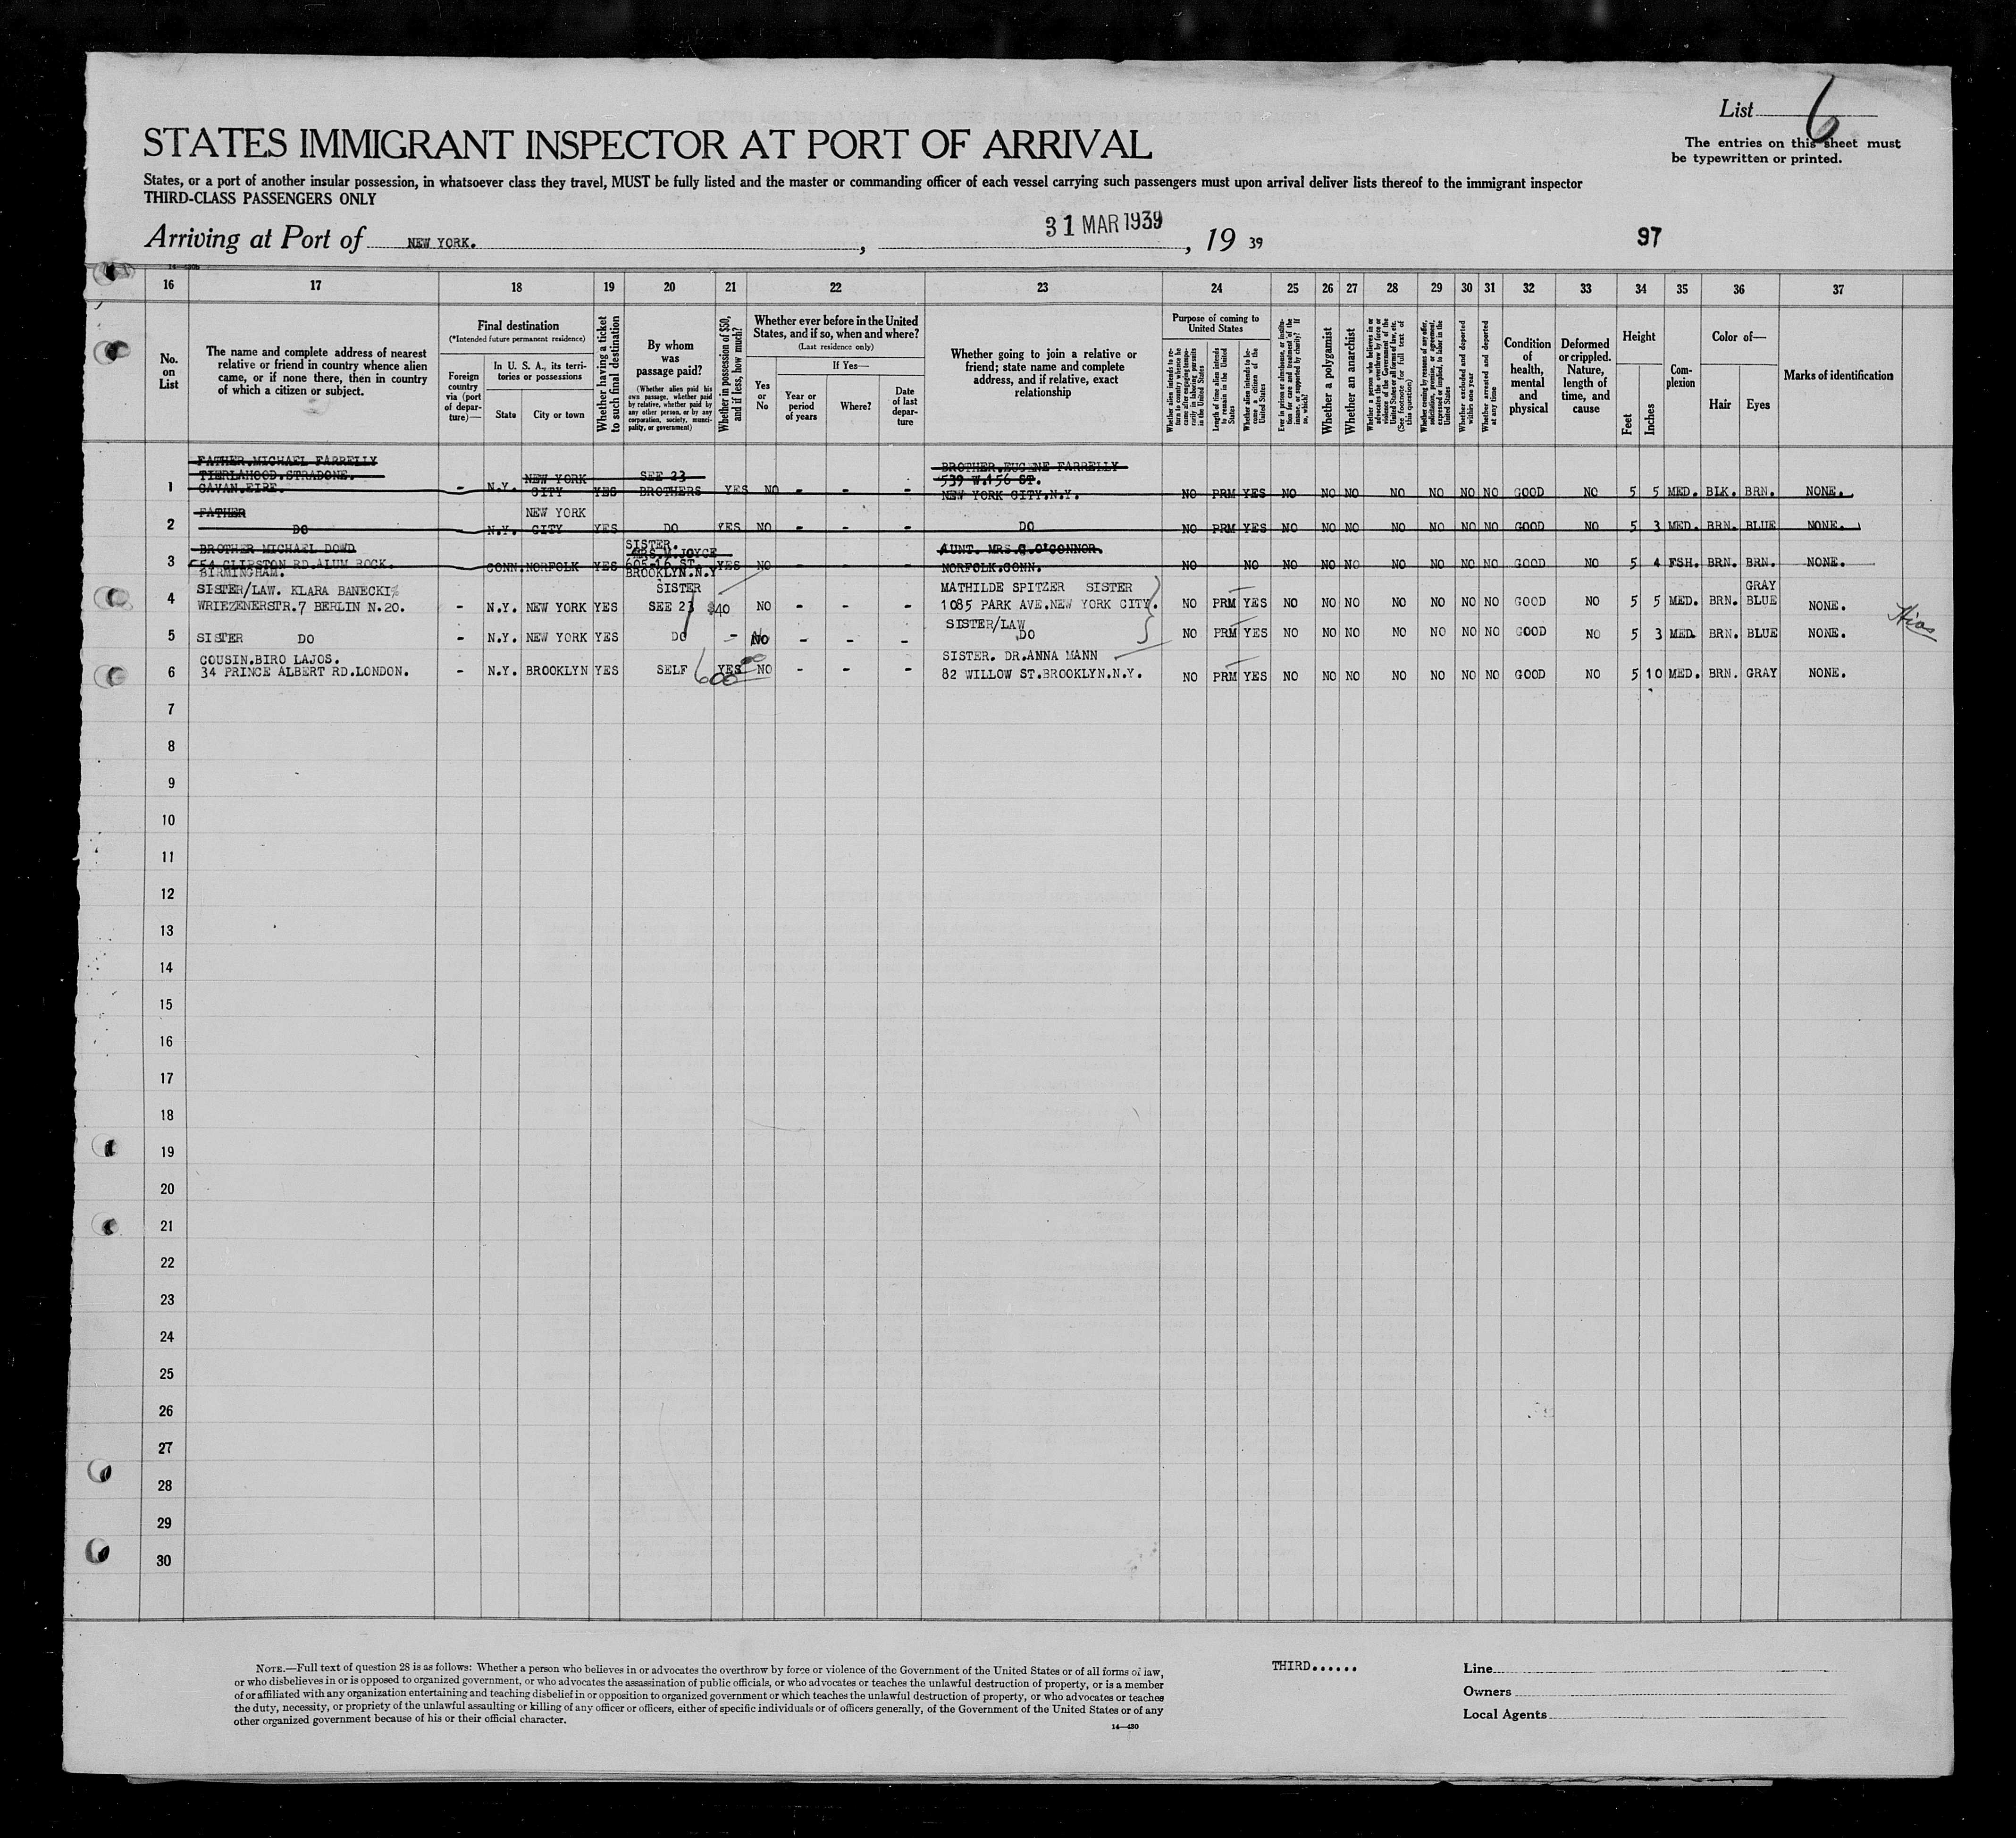 List 6
The entries on this sheet must
be typewritten or printed.
STATES IMMIGRANT INSPECTOR AT PORT OF ARRIVAL
States, or a port of another insular possession, in whatsoever class they travel, MUST be fully listed and the master or commanding officer of each vessel carrying such passengers must upon arrival deliver lists thereof to the immigrant inspector
THIRD-CLASS PASSENGERS ONLY
Arriving at Port of NEW YORK. , 31 MAR 1939 , 19 39
97
16 17 18 19 20 21 22 23 24 25 26 27 28 29 30 31 32 33 34 35 36 37
No. on List
The name and complete address of nearest relative or friend in country whence alien came, or if none there, then in country of which a citizen or subject.
Final destination
(*Intended future permanent residence)
Foreign country via (port of departure)—
In U. S. A., its territories or possessions
State
City or town
Whether having a ticket to such final destination
By whom was passage paid?
(Whether alien paid his own passage, whether paid by relative, whether paid by any other person, or by any corporation, society, municipality, or government)
Whether in possession of $50, and if less, how much?
Whether ever before in the United States, and if so, when and where?
(Last residence only)
Yes or No
If Yes—
Year or period of years
Where?
Date of last departure
Whether going to join a relative or friend; state name and complete address, and if relative, exact relationship
Purpose of coming to United States
Whether alien intends to return to country whence he came after engaging temporarily in laboring pursuits in the United States
Length of time alien intends to remain in the United States
Whether alien intends to become a citizen of the United States
Ever in prison or almshouse, or institution for care and treatment of the insane, or supported by charity? If so, which?
Whether a polygamist
Whether an anarchist
Whether a person who believes in or advocates the overthrow by force or violence of the Government of the United States or all forms of law, etc. (See footnote for full text of this question)
Whether coming by reasons of any offer, solicitation, promise, or agreement, expressed or implied, to labor in the United States
Whether excluded and deported within one year
Whether arrested and deported at any time
Condition of health, mental and physical
Deformed or crippled. Nature, length of time, and cause
Height
Feet
Inches
Complexion
Color of—
Hair
Eyes
Marks of identification
FATHER.MICHAEL FARRELLY
TIERLAHOOD.STRADONE.
CAVAN.EIRE.
1 - N.Y. NEW YORK CITY YES SEE 23 BROTHERS YES NO - - - BROTHER.EUGENE FARRELLY 539 W.156 ST. NEW YORK CITY.N.Y. NO PRM YES NO NO NO NO NO NO NO GOOD NO 5 5 MED. BLK. BRN. NONE.
2 FATHER DO N.Y. NEW YORK CITY YES DO YES NO - - - DO NO PRM YES NO NO NO NO NO NO NO GOOD NO 5 3 MED. BRN. BLUE NONE.
BROTHER MICHAEL DOWD
3 54 CLIPSTON RD.ALUM ROCK. BIRMINGHAM. CONN. NORFOLK YES SISTER. MRS.M.JOYCE 605-16 ST. BROOKLYN.N.Y YES NO AUNT. MRS.C.O'CONNOR. NORFOLK.CONN. NO NO NO NO NO NO NO NO NO GOOD NO 5 4 FSH. BRN. BRN. NONE.
SISTER/LAW. KLARA BANECKI
4 WRIEZENERSTR.7 BERLIN N.20. - N.Y. NEW YORK YES SISTER SEE 23 $40 NO - - - MATHILDE SPITZER SISTER 1085 PARK AVE.NEW YORK CITY. NO PRM YES NO NO NO NO NO NO NO GOOD NO 5 5 MED. BRN. GRAY BLUE NONE.
Hias
5 SISTER DO - N.Y. NEW YORK YES DO - NO - - - SISTER/LAW DO NO PRM YES NO NO NO NO NO NO NO GOOD NO 5 3 MED. BRN. BLUE NONE.
COUSIN.BIRO LAJOS.
6 34 PRINCE ALBERT RD.LONDON. - N.Y. BROOKLYN YES SELF YES 600.00 NO - - - SISTER. DR.ANNA MANN 82 WILLOW ST.BROOKLYN.N.Y. NO PRM YES NO NO NO NO NO NO NO GOOD NO 5 10 MED. BRN. GRAY NONE.
7
8
9
10
11
12
13
14
15
16
17
18
19
20
21
22
23
24
25
26
27
28
29
30
NOTE.—Full text of question 28 is as follows: Whether a person who believes in or advocates the overthrow by force or violence of the Government of the United States or of all forms of law,
or who disbelieves in or is opposed to organized government, or who advocates the assassination of public officials, or who advocates or teaches the unlawful destruction of property, or is a member
of or affiliated with any organization entertaining and teaching disbelief in or opposition to organized government or which teaches the unlawful destruction of property, or who advocates or teaches
the duty, necessity, or propriety of the unlawful assaulting or killing of any officer or officers, either of specific individuals or of officers generally, of the Government of the United States or of any
other organized government because of his or their official character.
14—430
THIRD......
Line
Owners
Local Agents